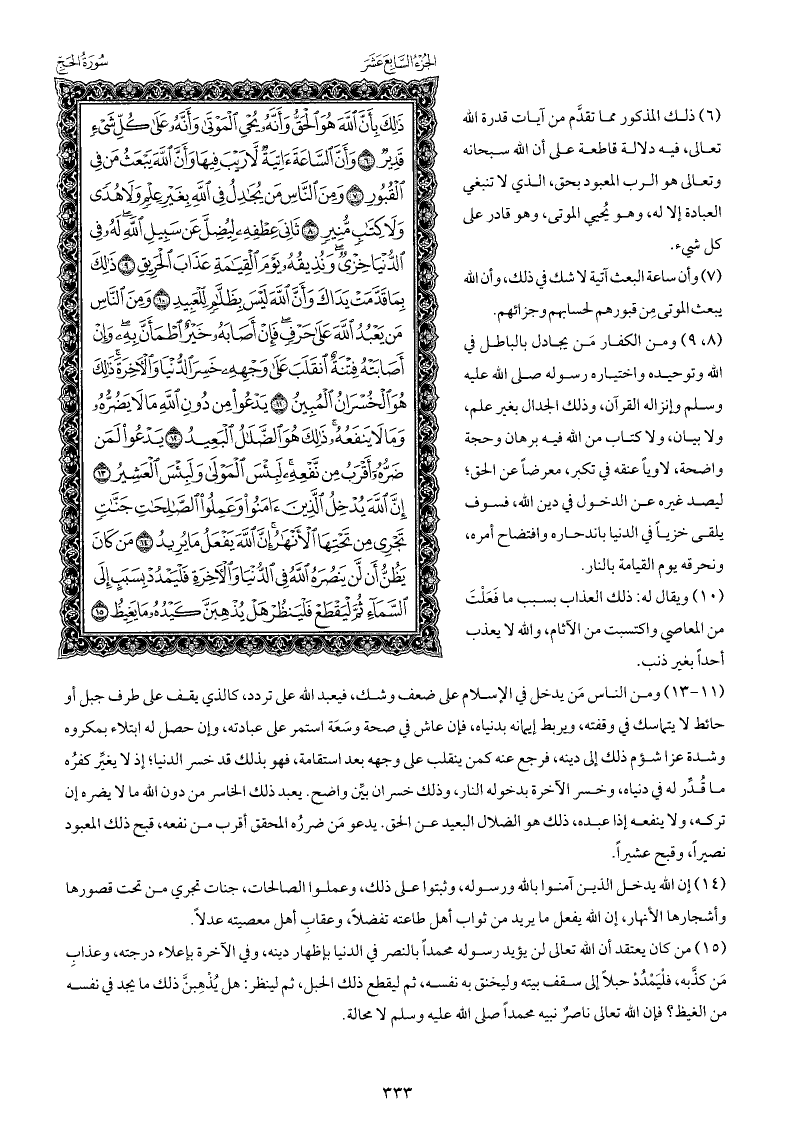 الجزء السابع عشر
سورة الحج
ذَٰلِكَ بِأَنَّ ٱللَّهَ هُوَ ٱلْحَقُّ وَأَنَّهُۥ يُحْىِ ٱلْمَوْتَىٰ وَأَنَّهُۥ عَلَىٰ كُلِّ شَىْءٍ
قَدِيرٌ ٦ وَأَنَّ ٱلسَّاعَةَ ءَاتِيَةٌ لَّا رَيْبَ فِيهَا وَأَنَّ ٱللَّهَ يَبْعَثُ مَن فِى
ٱلْقُبُورِ ٧ وَمِنَ ٱلنَّاسِ مَن يُجَٰدِلُ فِى ٱللَّهِ بِغَيْرِ عِلْمٍ وَلَا هُدًى
وَلَا كِتَٰبٍ مُّنِيرٍ ٨ ثَانِىَ عِطْفِهِۦ لِيُضِلَّ عَن سَبِيلِ ٱللَّهِ ۖ لَهُۥ فِى
ٱلدُّنْيَا خِزْىٌ ۖ وَنُذِيقُهُۥ يَوْمَ ٱلْقِيَٰمَةِ عَذَابَ ٱلْحَرِيقِ ٩ ذَٰلِكَ
بِمَا قَدَّمَتْ يَدَاكَ وَأَنَّ ٱللَّهَ لَيْسَ بِظَلَّٰمٍ لِّلْعَبِيدِ ١٠ وَمِنَ ٱلنَّاسِ
مَن يَعْبُدُ ٱللَّهَ عَلَىٰ حَرْفٍ ۖ فَإِنْ أَصَابَهُۥ خَيْرٌ ٱطْمَأَنَّ بِهِۦ ۖ وَإِنْ
أَصَابَتْهُ فِتْنَةٌ ٱنقَلَبَ عَلَىٰ وَجْهِهِۦ خَسِرَ ٱلدُّنْيَا وَٱلْءَاخِرَةَ ۚ ذَٰلِكَ
هُوَ ٱلْخُسْرَانُ ٱلْمُبِينُ ١١ يَدْعُوا۟ مِن دُونِ ٱللَّهِ مَا لَا يَضُرُّهُۥ
وَمَا لَا يَنفَعُهُۥ ۚ ذَٰلِكَ هُوَ ٱلضَّلَٰلُ ٱلْبَعِيدُ ١٢ يَدْعُوا۟ لَمَن
ضَرُّهُۥٓ أَقْرَبُ مِن نَّفْعِهِۦ ۚ لَبِئْسَ ٱلْمَوْلَىٰ وَلَبِئْسَ ٱلْعَشِيرُ ١٣
إِنَّ ٱللَّهَ يُدْخِلُ ٱلَّذِينَ ءَامَنُوا۟ وَعَمِلُوا۟ ٱلصَّٰلِحَٰتِ جَنَّٰتٍ
تَجْرِى مِن تَحْتِهَا ٱلْأَنْهَٰرُ ۚ إِنَّ ٱللَّهَ يَفْعَلُ مَا يُرِيدُ ١٤ مَن كَانَ
يَظُنُّ أَن لَّن يَنصُرَهُ ٱللَّهُ فِى ٱلدُّنْيَا وَٱلْءَاخِرَةِ فَلْيَمْدُدْ بِسَبَبٍ إِلَى
ٱلسَّمَآءِ ثُمَّ لْيَقْطَعْ فَلْيَنظُرْ هَلْ يُذْهِبَنَّ كَيْدُهُۥ مَا يَغِيظُ ١٥
(٦) ذلـك المذكور مما تقدَّم من آيـات قدرة الله
تعالى، فيـه دلالـة قاطعـة على أن الله سـبحانه
وتعالى هو الـرب المعبود بحق، الـذي لا تنبغي
العبادة إلا له، وهـو يُحيي الموتى، وهو قادر على
كل شيء.
(٧) وأن ساعة البعث آتية لا شك في ذلك، وأن الله
يبعث الموتى مِن قبورهم لحسابهم وجزائهم.
(٨، ٩) ومـن الكفار مَـن يجادل بالباطل في
الله وتوحيـده واختيـاره رسـوله صـلى الله عليه
وسلم وإنزاله القرآن، وذلك الجدال بغير علم،
ولا بيـان، ولا كتـاب مـن الله فيـه برهان وحجة
واضحة، لاوياً عنقه في تكبر، معرضاً عن الحق؛
ليصـد غيره عـن الدخـول في دين الله، فسـوف
يلقـى خزيـاً في الدنيا باندحاره وافتضاح أمره،
ونحرقه يوم القيامة بالنار.
(١٠) ويقال له: ذلك العذاب بسبب ما فَعَلْتَ
من المعاصي واكتسبت من الآثام، والله لا يعذب
أحداً بغير ذنب.
(١١-١٣) ومـن الناس مَن يدخل في الإسـلام على ضعف وشـك، فيعبد الله على تردد، كالذي يقـف على طرف جبل أو
حائط لا يتماسك في وقفته، ويربط إيمانه بدنياه، فإن عاش في صحة وسَعَة استمر على عبادته، وإن حصل له ابتلاء بمكروه
وشدة عزا شـؤم ذلك إلى دينه، فرجع عنه كمن ينقلب على وجهه بعد استقامة، فهو بذلك قد خسر الدنيا؛ إذ لا يغيِّر كفرُه
مـا قُـدِّر له في دنياه، وخسر الآخرة بدخوله النار، وذلك خسران بيِّن واضح. يعبد ذلك الخاسر من دون الله ما لا يضره إن
تركـه، ولا ينفعـه إذا عبـده، ذلك هو الضلال البعيد عـن الحق. يدعو مَن ضررُه المحقق أقرب مـن نفعه، قبح ذلك المعبود
نصيراً، وقبح عشيراً.
(١٤) إن الله يدخـل الذيـن آمنـوا بالله ورسـوله، وثبتوا عـلى ذلك، وعملـوا الصالحات، جنات تجري مـن تحت قصورها
وأشجارها الأنهار، إن الله يفعل ما يريد من ثواب أهل طاعته تفضلاً، وعقابِ أهل معصيته عدلاً.
(١٥) من كان يعتقد أن الله تعالى لن يؤيد رسوله محمداً بالنصر في الدنيا بإظهار دينه، وفي الآخرة بإعلاء درجته، وعذابِ
مَن كذَّبه، فلْيَمْدُدْ حبلاً إلى سقف بيته وليخنق به نفسـه، ثم ليقطع ذلك الحبل، ثم لينظر: هل يُذْهِبنَّ ذلك ما يجد في نفسـه
من الغيظ؟ فإن الله تعالى ناصرٌ نبيه محمداً صلى الله عليه وسلم لا محالة.
٣٣٣